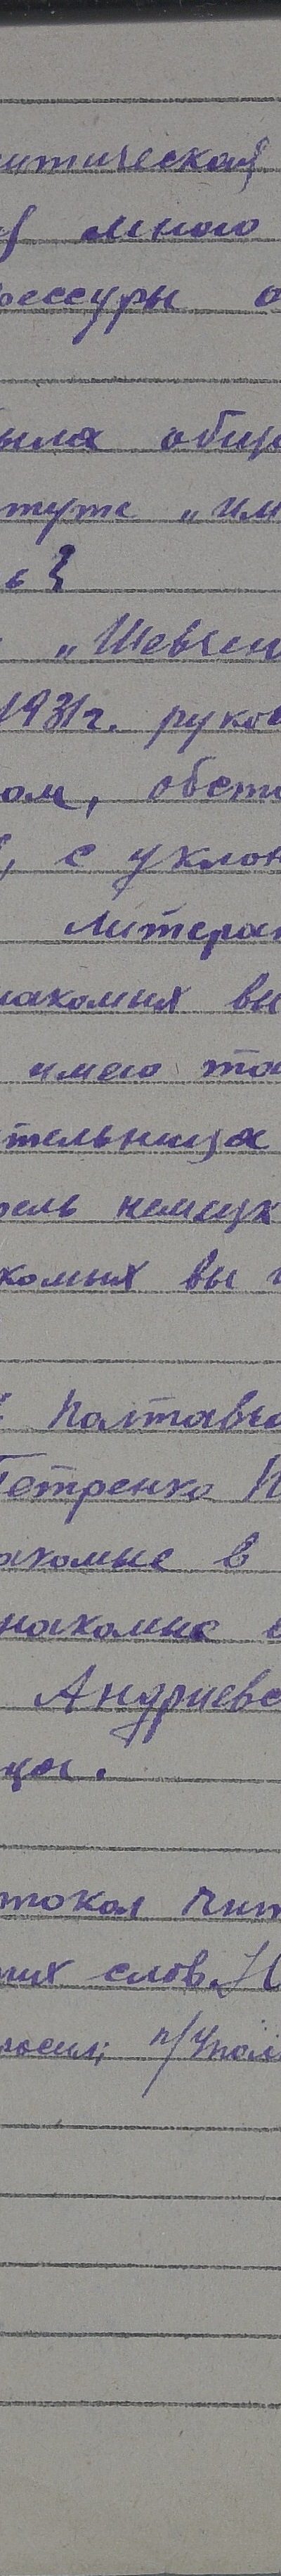 итическая
много
рессуры о
ыла общ
туте „им
в }
„Шевчен
1931г. руков
ом, обст
, с уклон
Литера
накомих вы
имею та
ительница
рель немецк
комых вы
Полтавс
Петренко П
акомые в
накомие
Андриевс
цы.
токол чит
их слов.
росил: п/Упол